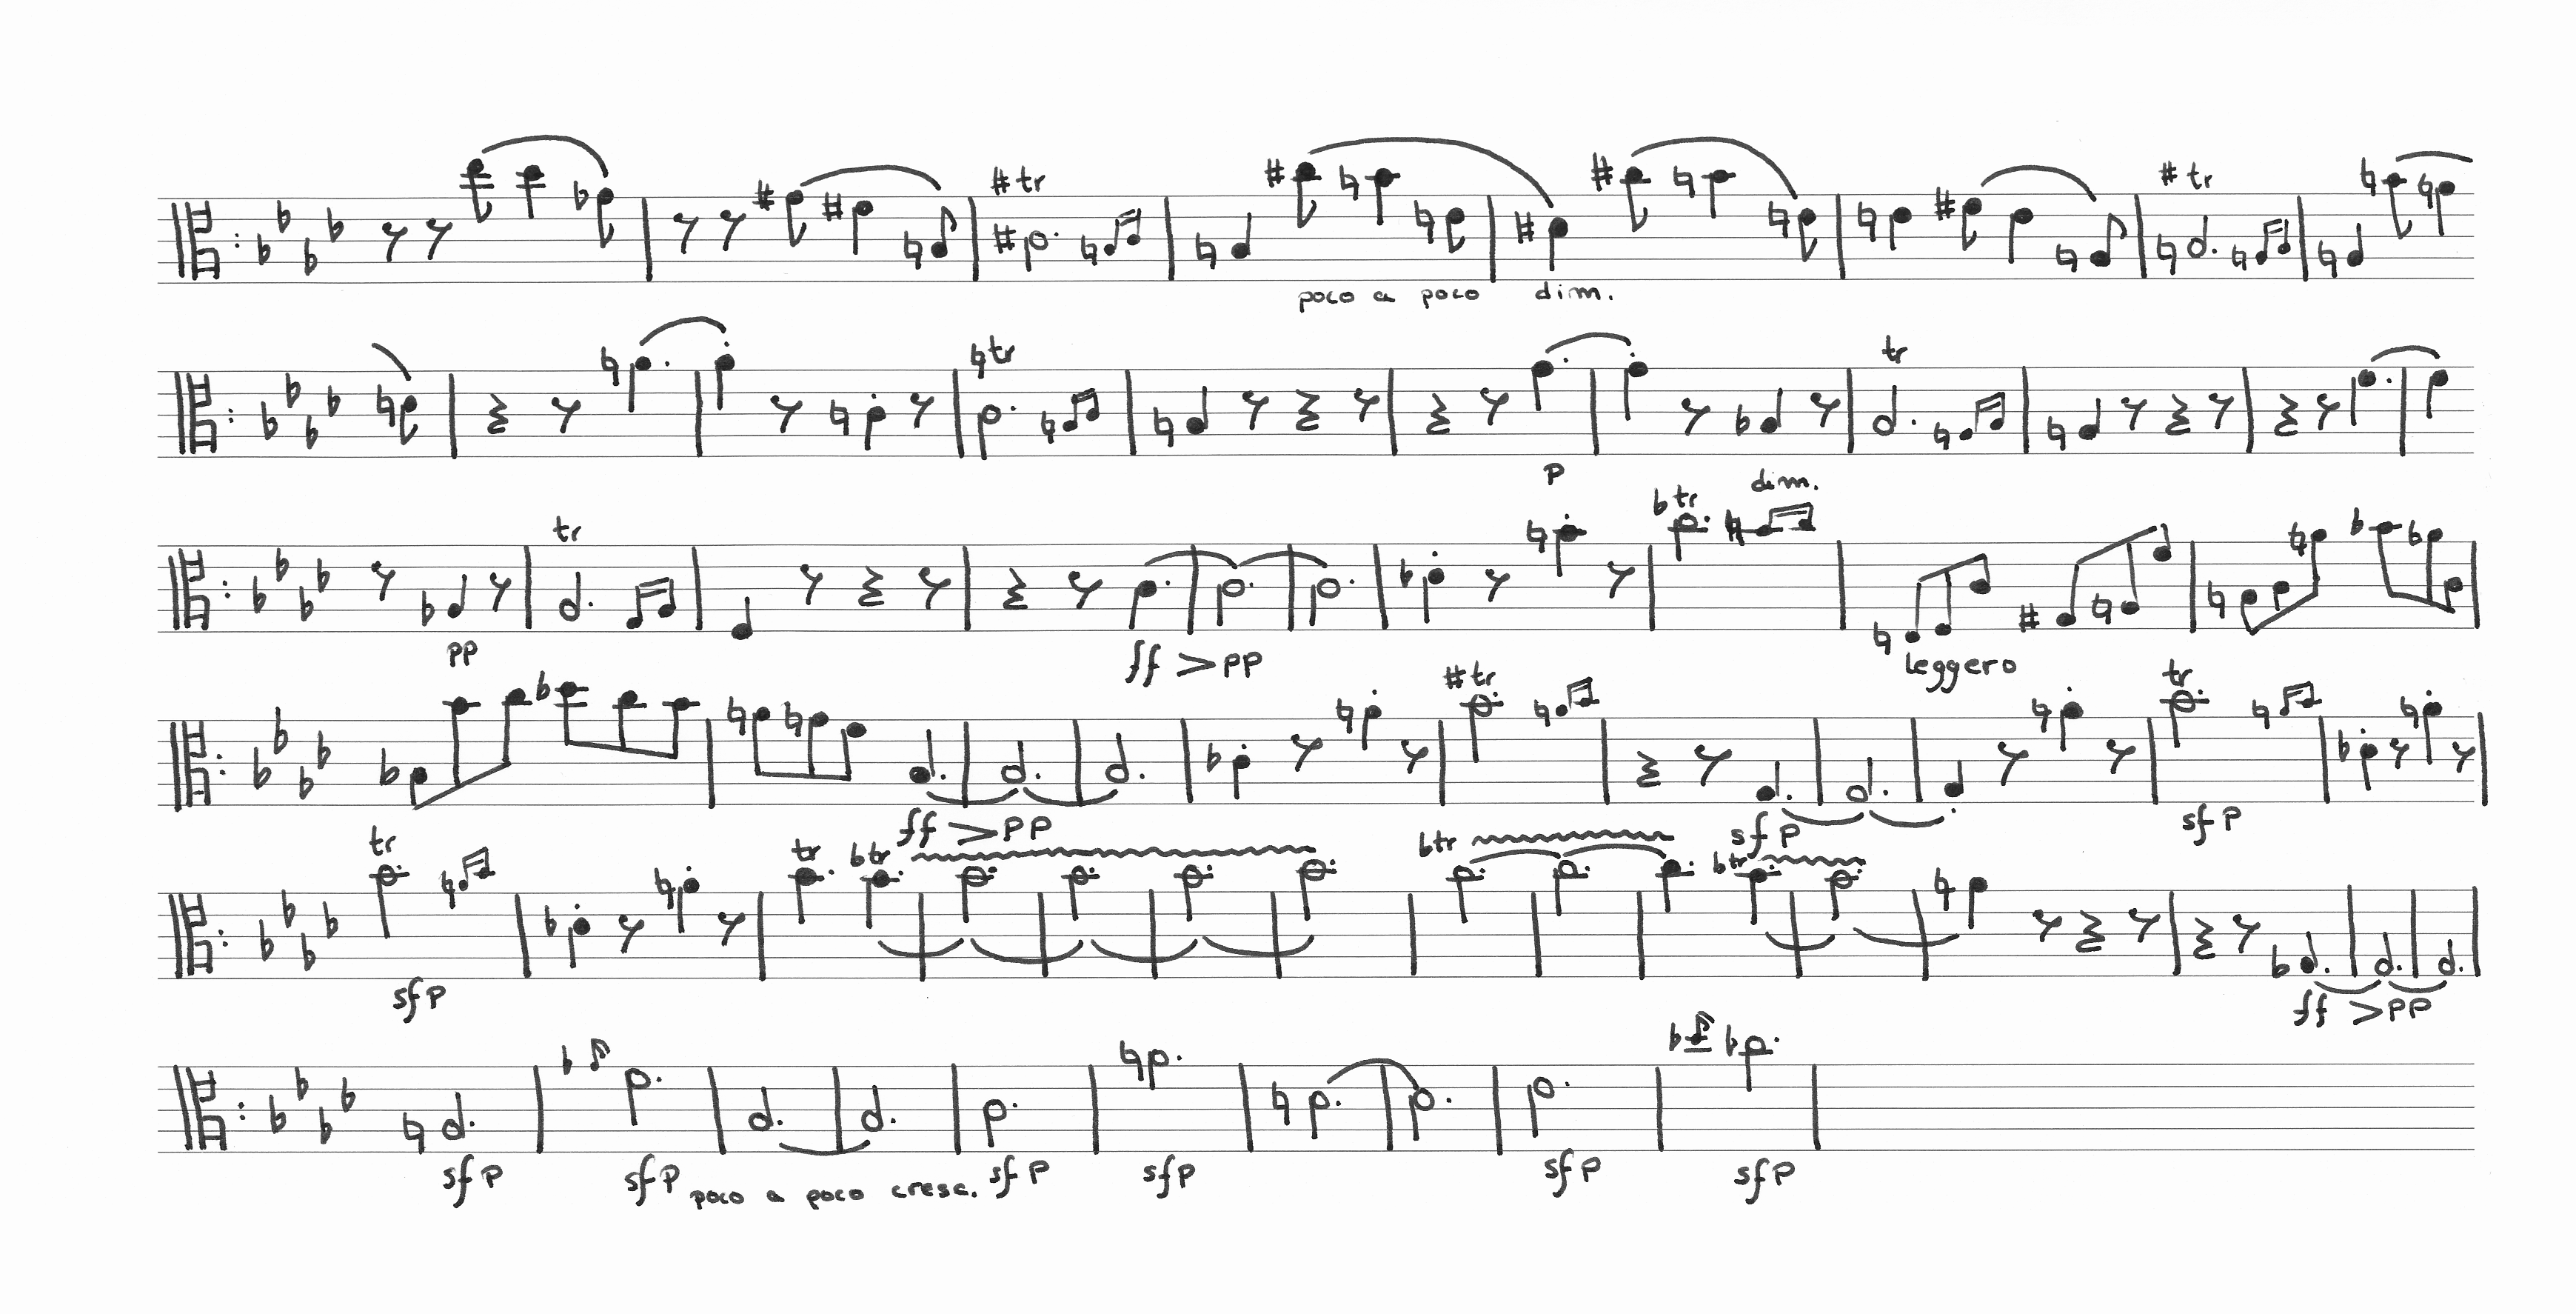 tr
tr
poco a poco dim.
tr
tr
p
dim.
tr
tr
pp
ff > pp
leggero
tr
tr
ff > pp
sf p
sf p
tr
tr
tr
tr
tr
sf p
ff > pp
sf p
sf p
poco a poco cresc.
sf p
sf p
sf p
sf p